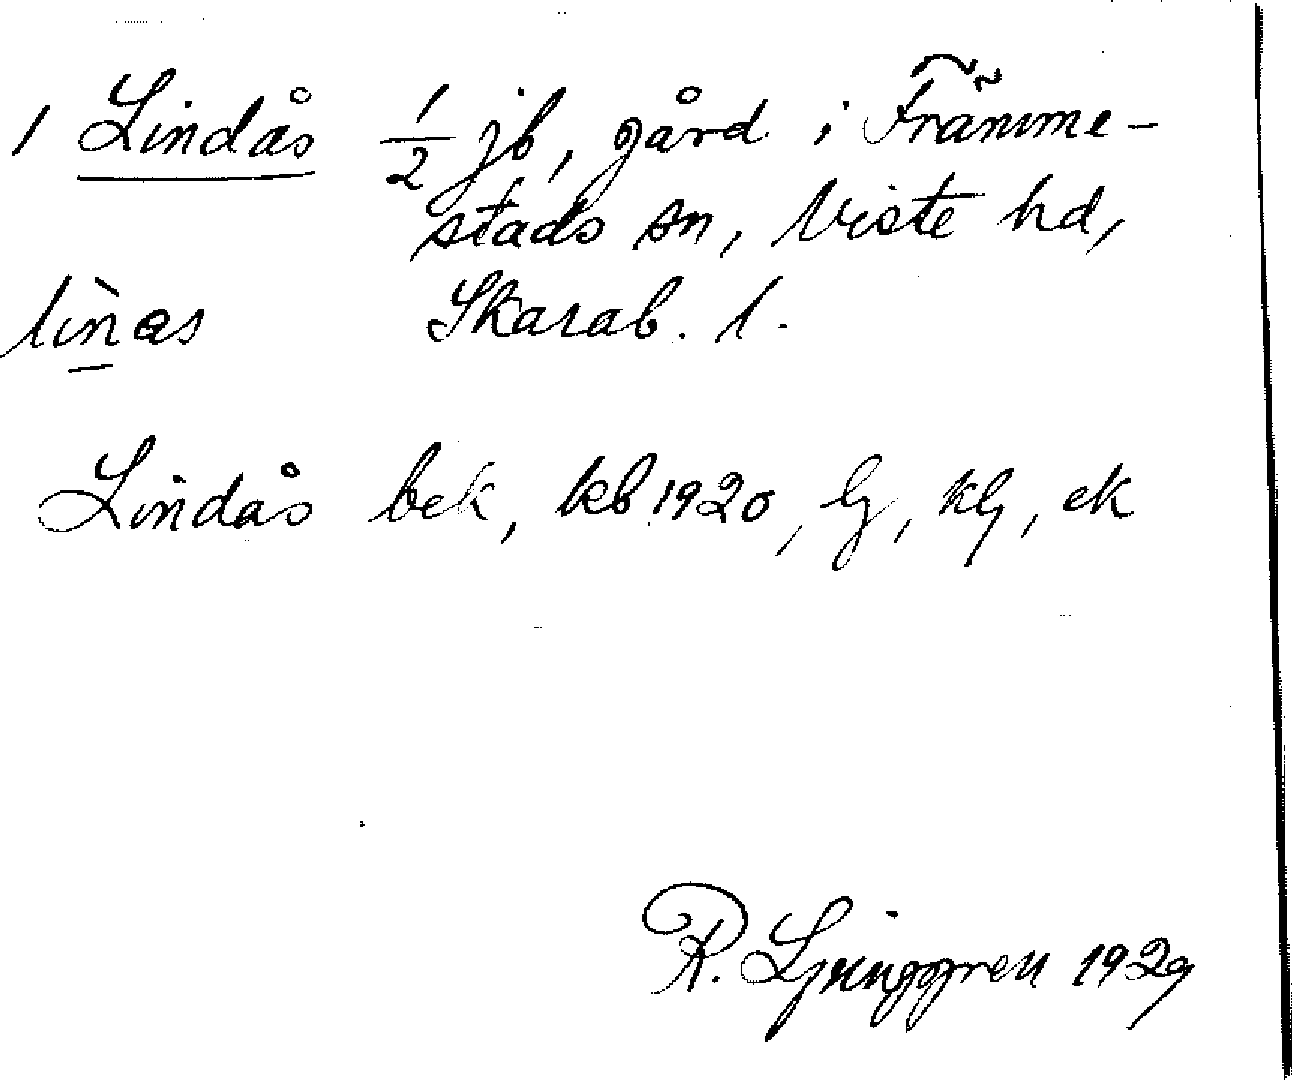 1 Lindås ½ jb, gård i Främme-
stads sn, Viste hd,
lìnas Skarab. l.
Lindås bek, kb 1920, lg, kg, ek
R. Ljunggren 1929